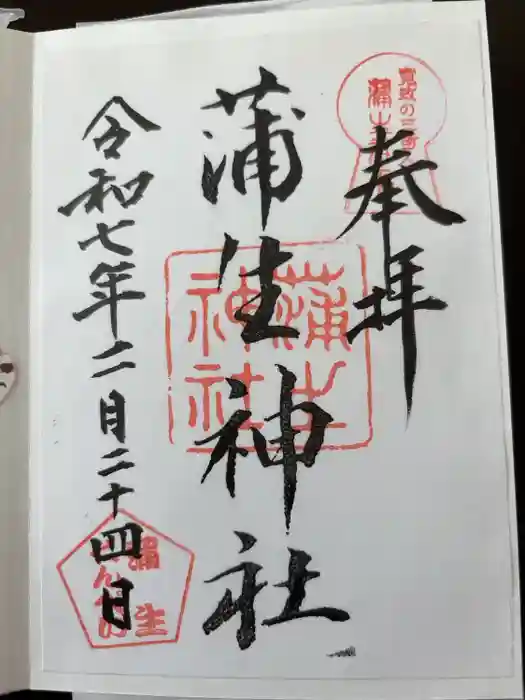 奉拝
寛政の三奇人
蒲生神社
蒲生神社
令和七年二月二十四日
蒲生